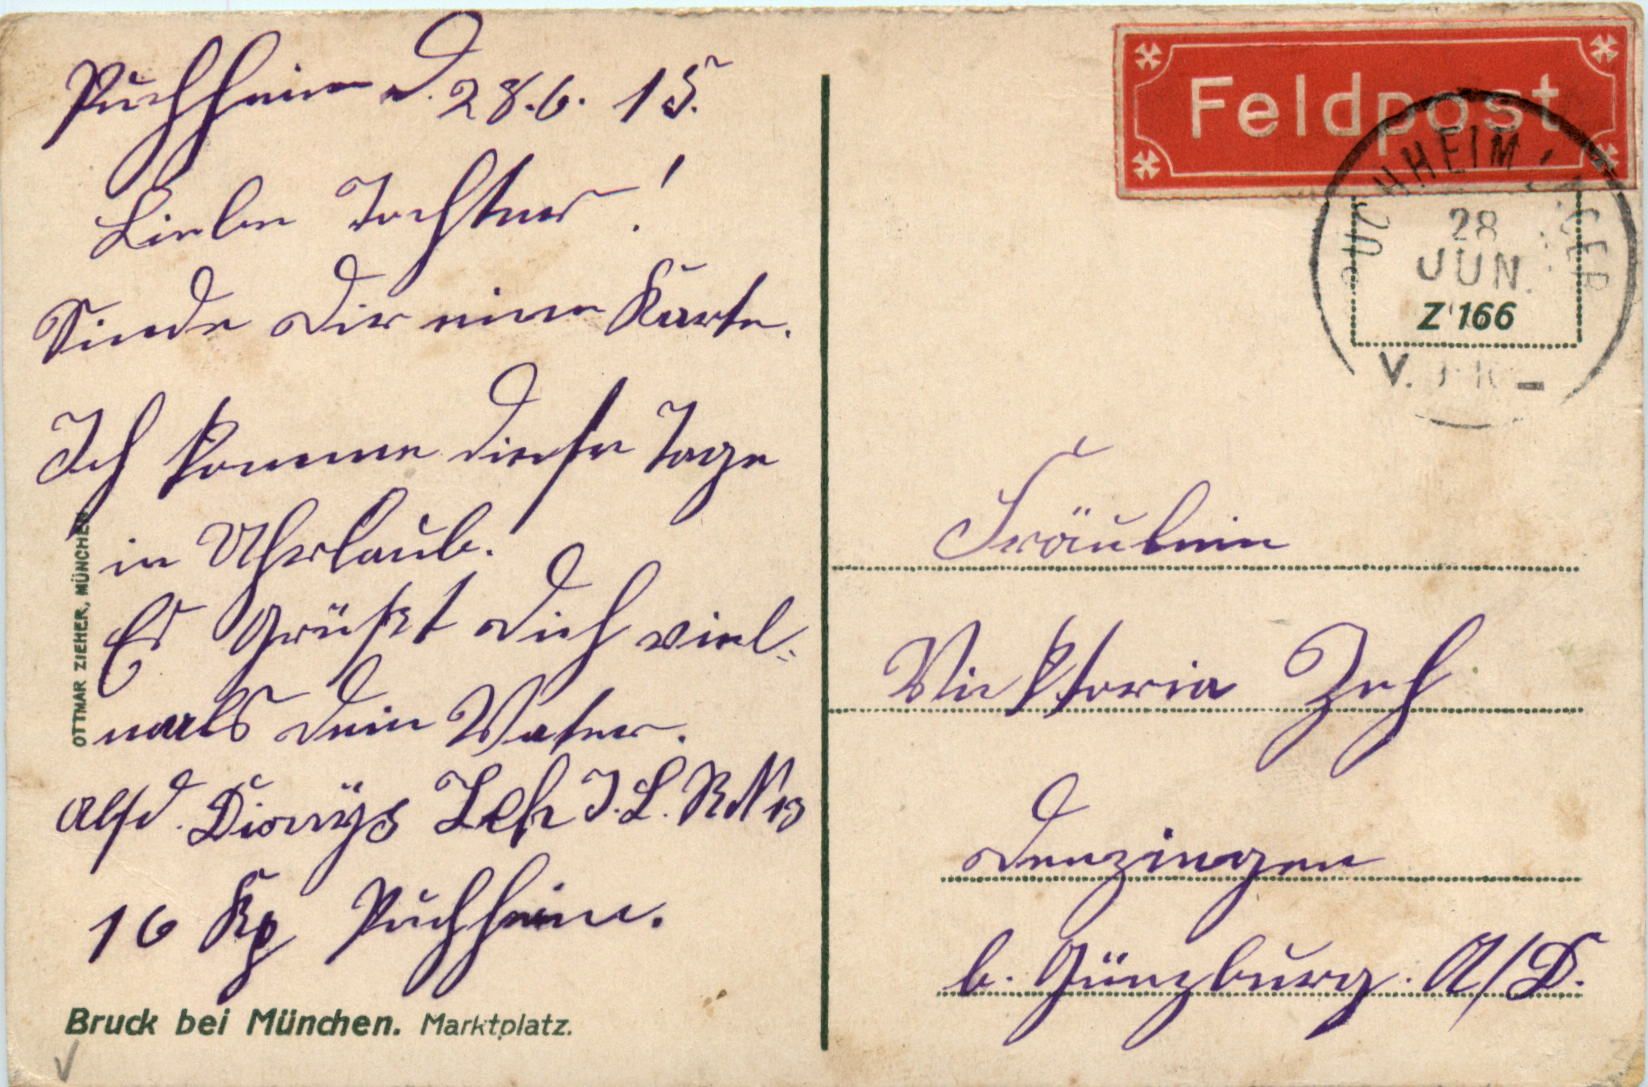 Puchheim d. 28.6. 15.
Liebe Tochter!
Sende dir eine Karte.
Ich komme diese Tage
in Uhrlaub.
Es Grüßt dich viel-
mals dein Vater.
Absd. Dionys Zeh I. L. R N 13
16 Kp Puchheim.
OTTMAR ZIEHER, MÜNCHEN
Bruck bei München. Marktplatz.
Feldpost
PUCHHEIM LAGER
28
JUN.
Z 166
V.
Fräulein
Vicktoria Zeh
Denzingen
b. Günzburg. A/D.